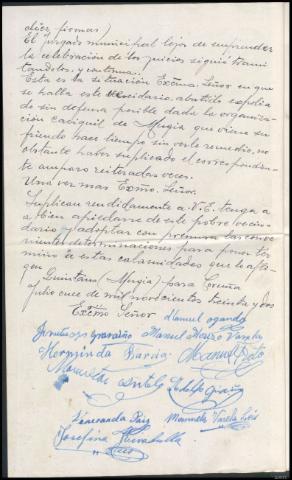 diez firmas)
El juzgado municipal lejos de suspender
la celebración de los juicios siguió trami
tandolos, y continua.
Esta es la situación Excmo. Señor en que
se halla este vecidario, abatido espolia
do sin defensa posible dada la organiza
ción caciquil de Mugia que viene su
friendo hace tiempo sin verle remedio, no
obstante haber suplicado el correspondien
te amparo reiteradas veces.
Una vez mas Excmo. Señor.
Suplican rendidamente a V.E. tenga a
a bien apiadarse de este pobre vecin
dario y adoptar con premura las conve
nientes determinaciones para poner ter
mino a estas calamidades que le afli
gen
Quintans (Mugia) para Coruña
julio once de mil novecientos treinta y dos
Excmo Señor
Manuel ogando
Manuel Mouzo Varela
Herminda Faria Manuel Soto
Adolfo
Esmeranda Paz Manuela Varela
Josefina